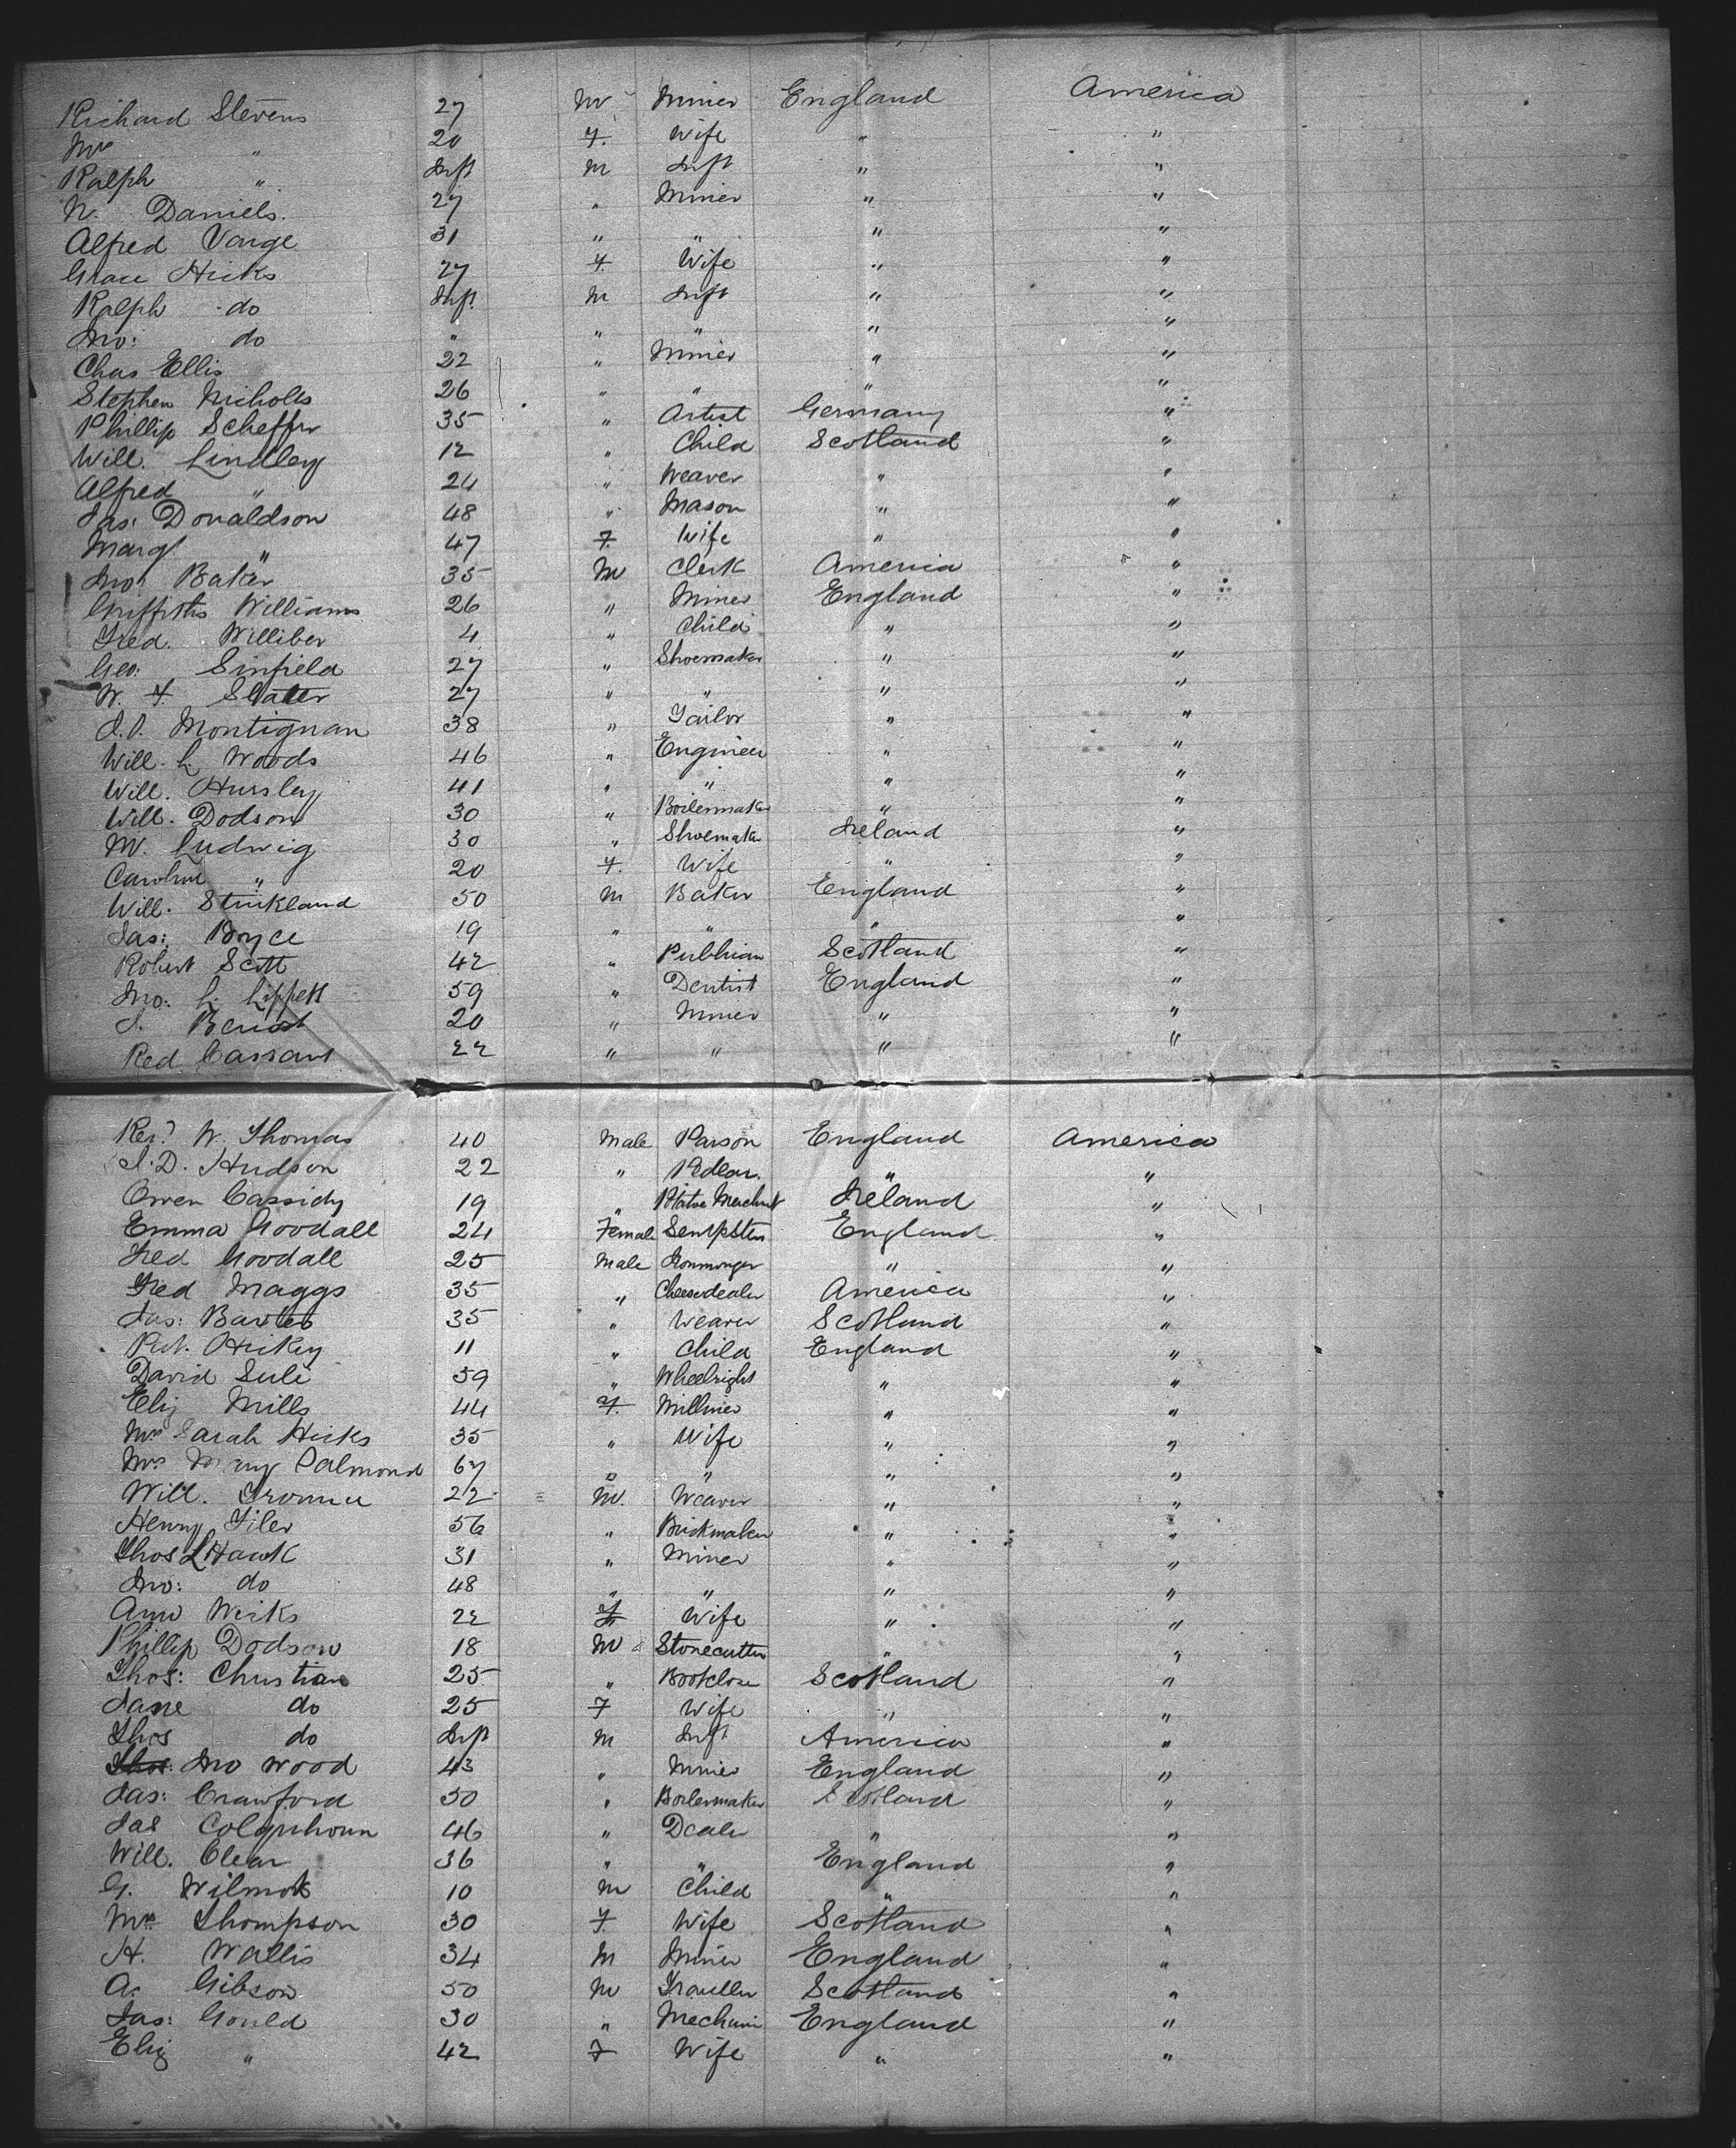 Richard Stevens 27 M Miner England America
Mrs " 20 F. Wife " "
Ralph " Inft M Inft " "
N. Daniels. 27 " Miner " "
Alfred 31 " " " "
Grace Hicks 27 F. Wife " "
Ralph do Inft. M Inft " "
Jno: do " " " " "
Chas Ellis 22 " Miner " "
Stephen Nicholls 26 " " " "
Phillip Scheffer 35 " Artist Germany "
Will. Lindley 12 " Child Scotland "
Alfred " 24 " Weaver " "
Jas: Donaldson 48 " Mason " "
Margt " 47 F. Wife " "
Jno: Baker 35 M Clerk America "
Griffiths Williams 26 " Miner England "
Fred. Williber 4 " Child " "
Geo: Sinfield 27 " Shoemaker " "
W. F. Slater 27 " " " "
Montignan 38 " Tailor " "
Will. L Woods 46 " Engineer " "
Will. Hursley 41 " " " "
Will. Dodson 30 " Boilermaker " "
M. Ludwig 30 " Shoemaker Ireland "
Caroline " 20 F. Wife " "
Will. Strickland 50 M Baker England "
Jas: Boyce 19 " " " "
Robert Scott 42 " Publican Scotland "
Jno: L. Lippett 59 " Dentist England "
J. 20 " Miner " "
Red Cassant 22 " " " "
Revd W. Thomas 40 Male Parson England America
J. D. Hudson 22 " Pedlar. " "
Owen Cassidy 19 " Potatoe Merchnt Ireland "
Emma Goodall 24 Female Sempsters England "
Fred Goodall 25 Male Ironmonger " "
Fred Maggs 35 " Cheesedealer America "
Jas: Baxter 35 " Weaver Scotland "
Pat. Hickey 11 " Child England "
David Sule 59 " Wheelright " "
Eliz Mills 44 F. Milliner " "
Mrs Sarah Hicks 35 " Wife " "
Mrs Mary Palmond 67 " " " "
Will. 22 M. Weaver " "
Henry Tiler 56 " Brickmaker " "
Thos L Hawk 31 " Miner " "
Jno: do 48 " " " "
Ann Weeks 22 F Wife " "
Phillip Dodson 18 M Stonecutter " "
Thos: Christian 25 " Bootcloser Scotland "
Jane do 25 F Wife " "
Thos do Inft M Inft America "
Jno Wood 43 " Miner England "
Jas: Crawford 50 " Boilermaker Scotland "
Jas Colquhoun 46 " Dealer " "
Will. Clear 36 " " England "
G. Wilmot 10 M Child " "
Mrs Thompson 30 F. Wife Scotland "
H. Wallis 34 M Miner England "
A. Gibson 50 M Traveller Scotland "
Jas: Gould 30 " Mechanic England "
Eliz " 42 F Wife " "